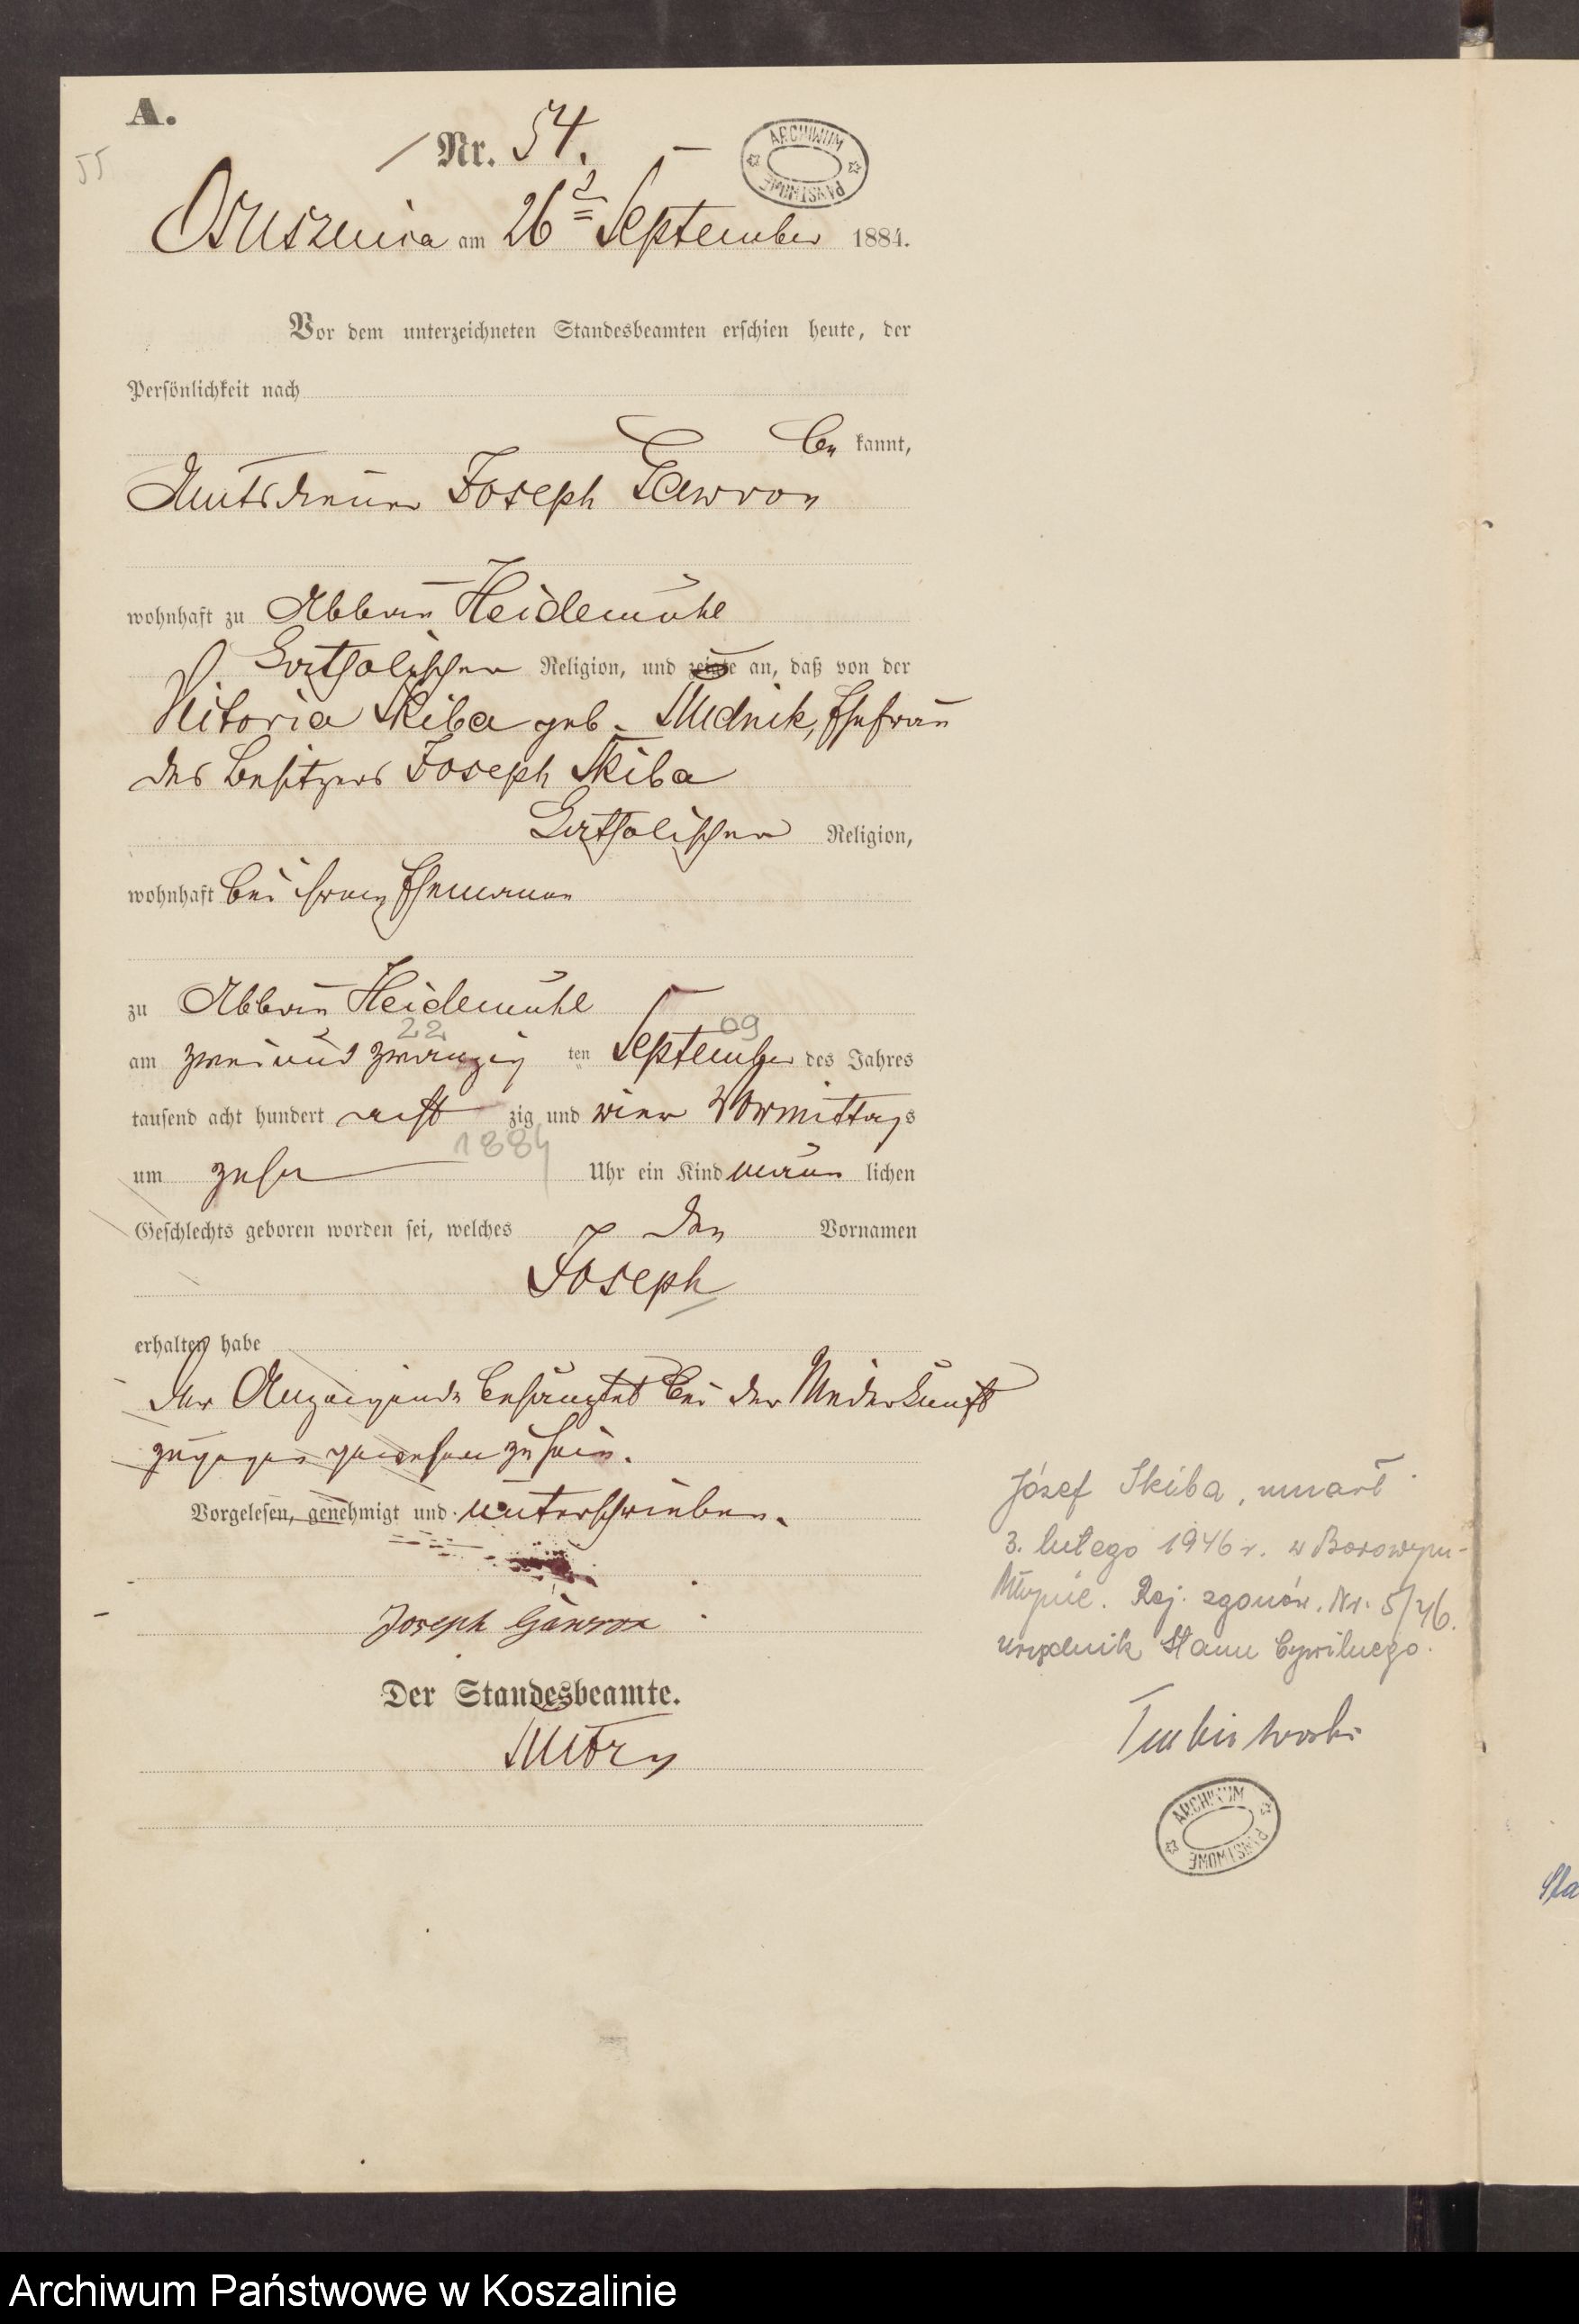 A.
55
Nr. 54.
ARCHIWUM PAŃSTWOWE
Osusznica am 26ᵗ September 1884.
Vor dem unterzeichneten Standesbeamten erschien heute, der
Persönlichkeit nach
be kannt,
Amtsdiener Joseph Gawron
wohnhaft zu Abbau Heidemühl
katholischer Religion, und zeigte an, daß von der
Vitoria Skiba geb. Rudnik, Ehefrau
des Besitzers Joseph Skiba
katholischer Religion,
wohnhaft bei ihrem Ehemann
zu Abbau Heidemühl
22 09
am zwei und zwanzig ten September des Jahres
tausend acht hundert acht zig und vier Vormittags
1884
um zehn Uhr ein Kind männ lichen
Geschlechts geboren worden sei, welches den Vornamen
Joseph
erhalten habe
Der Anzeigende behauptet bei der Niederkunft
zugegen gewesen zu sein.
Vorgelesen, genehmigt und unterschrieben.
Joseph Gawron
Der Standesbeamte.
Józef Skiba, umarł
3. lutego 1946 r. w Borowym-
Młynie. Rej. zgonów. Nr. 5/46.
urzędnik Stanu Cywilnego.
ARCHIWUM PAŃSTWOWE
Archiwum Państwowe w Koszalinie